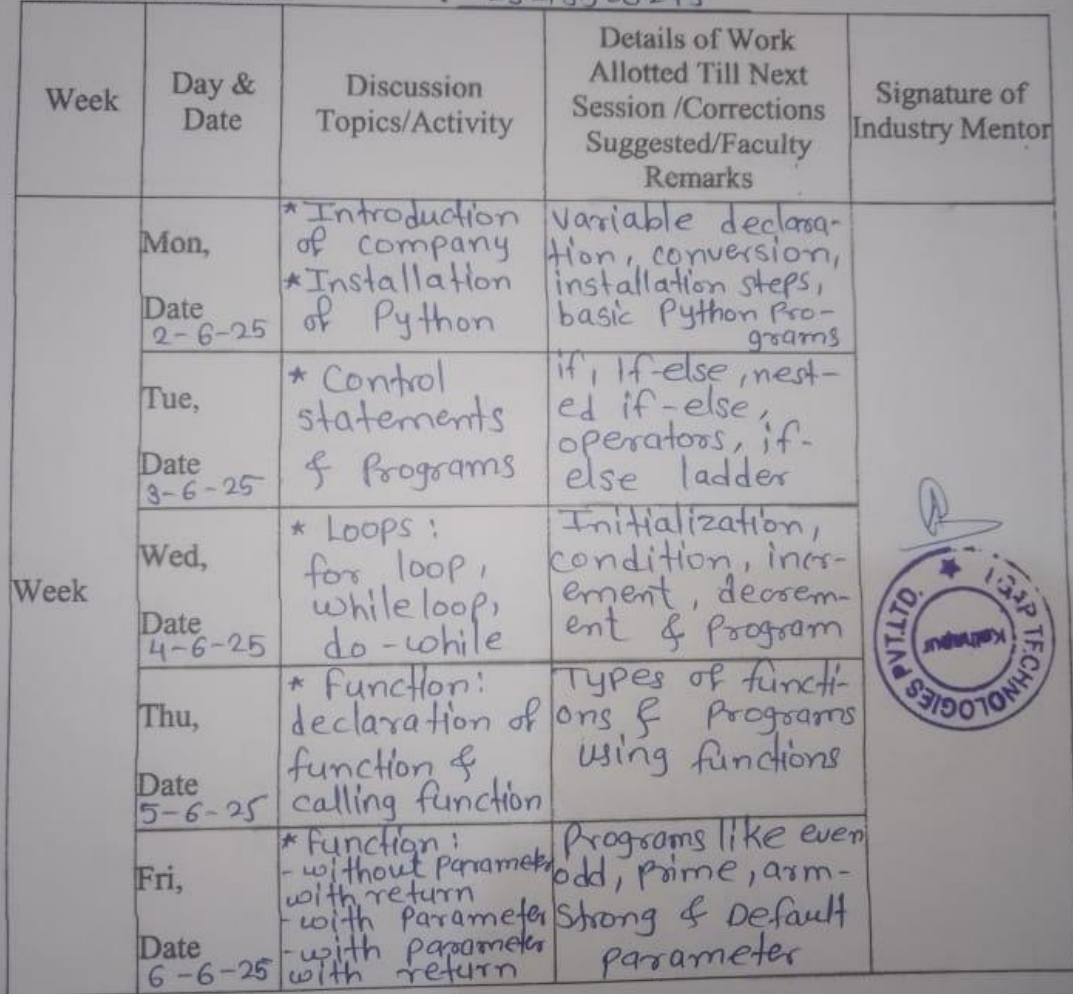 Week
Day &
Date
Discussion
Topics/Activity
Details of Work
Allotted Till Next
Session /Corrections
Suggested/Faculty
Remarks
Signature of
Industry Mentor
Week
Mon,
Date
2-6-25
* Introduction
of company
* Installation
of Python
variable declara-
tion, conversion,
installation steps,
basic Python Pro-
grams
Tue,
Date
3-6-25
* Control
statements
& Programs
if, if-else, nest-
ed if-else,
operators, if-
else ladder
Wed,
Date
4-6-25
* Loops:
for loop,
while loop,
do-while
Initialization,
condition, incr-
ement, decrem-
ent & Program
Thu,
Date
5-6-25
* Function:
declaration of
function &
calling function
Types of functi-
ons & Programs
using functions
Fri,
Date
6-6-25
* function:
- without parameter
with return
- with parameter
- with parameter
with return
Programs like even
odd, prime, arm-
strong & Default
parameter
TECHNOLOGIES PVT.LTD.
Kolhapur